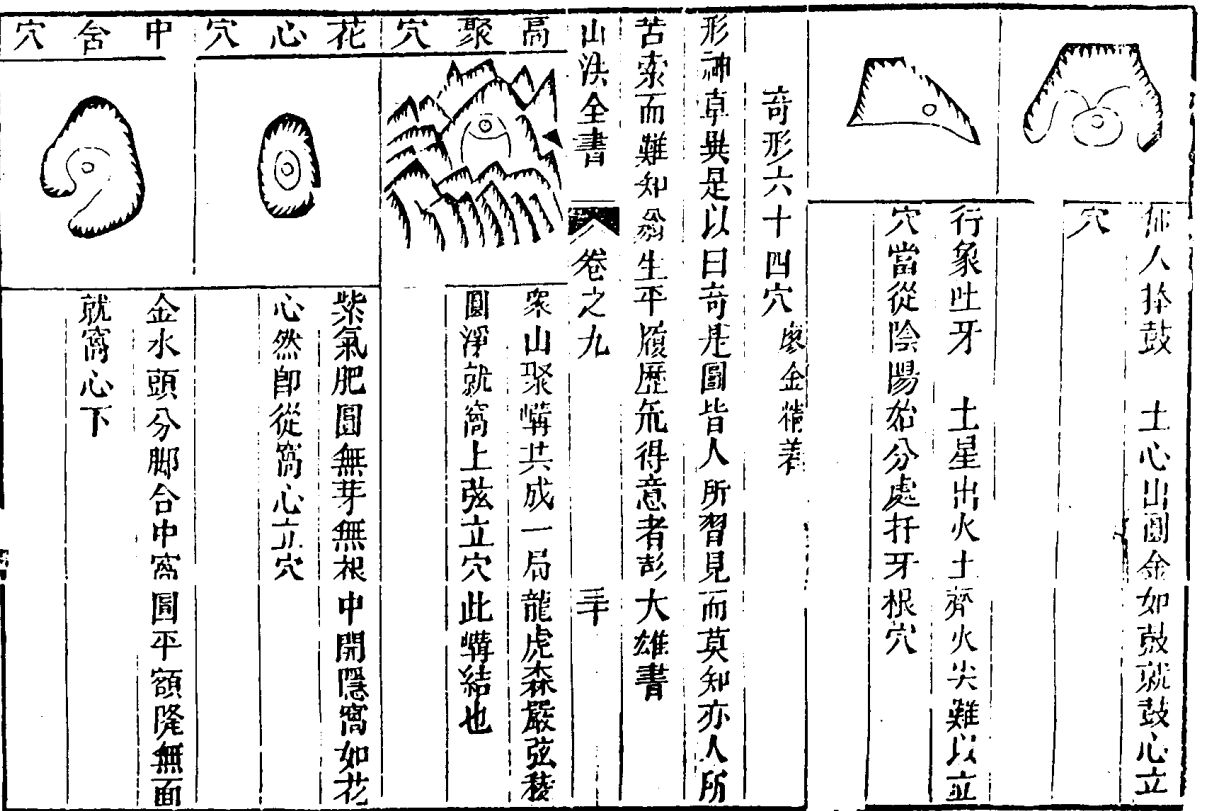 仙人捧鼓　土心出圓金如鼓就鼓心立
穴
行象吐牙　土星出火土齊火尖難以立
穴當從陰陽始分處扦牙根穴
奇形六十四穴　廖金精著
形神卓異是以曰奇是圖皆人所習見而莫知亦人所
苦索而難知翁生平履歷元得意者彭大雄書
山洪全書　卷之九　三十
高聚穴
衆山聚講共成一局龍虎森嚴弦稜
圓淨就窩上弦立穴此講結也
花心穴
紫氣肥圓無芽無根中開隱窩如花
心然卽從窩心立穴
中含穴
金水頭分脚合中窩圓平額降無面
就窩心下